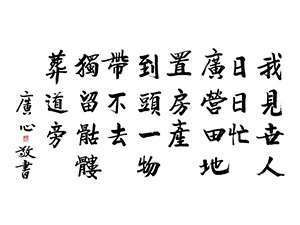 我見世人
日日忙
廣營田地
置房產
到頭一物
帶不去
獨留骷髏
葬道旁
廣心敬書